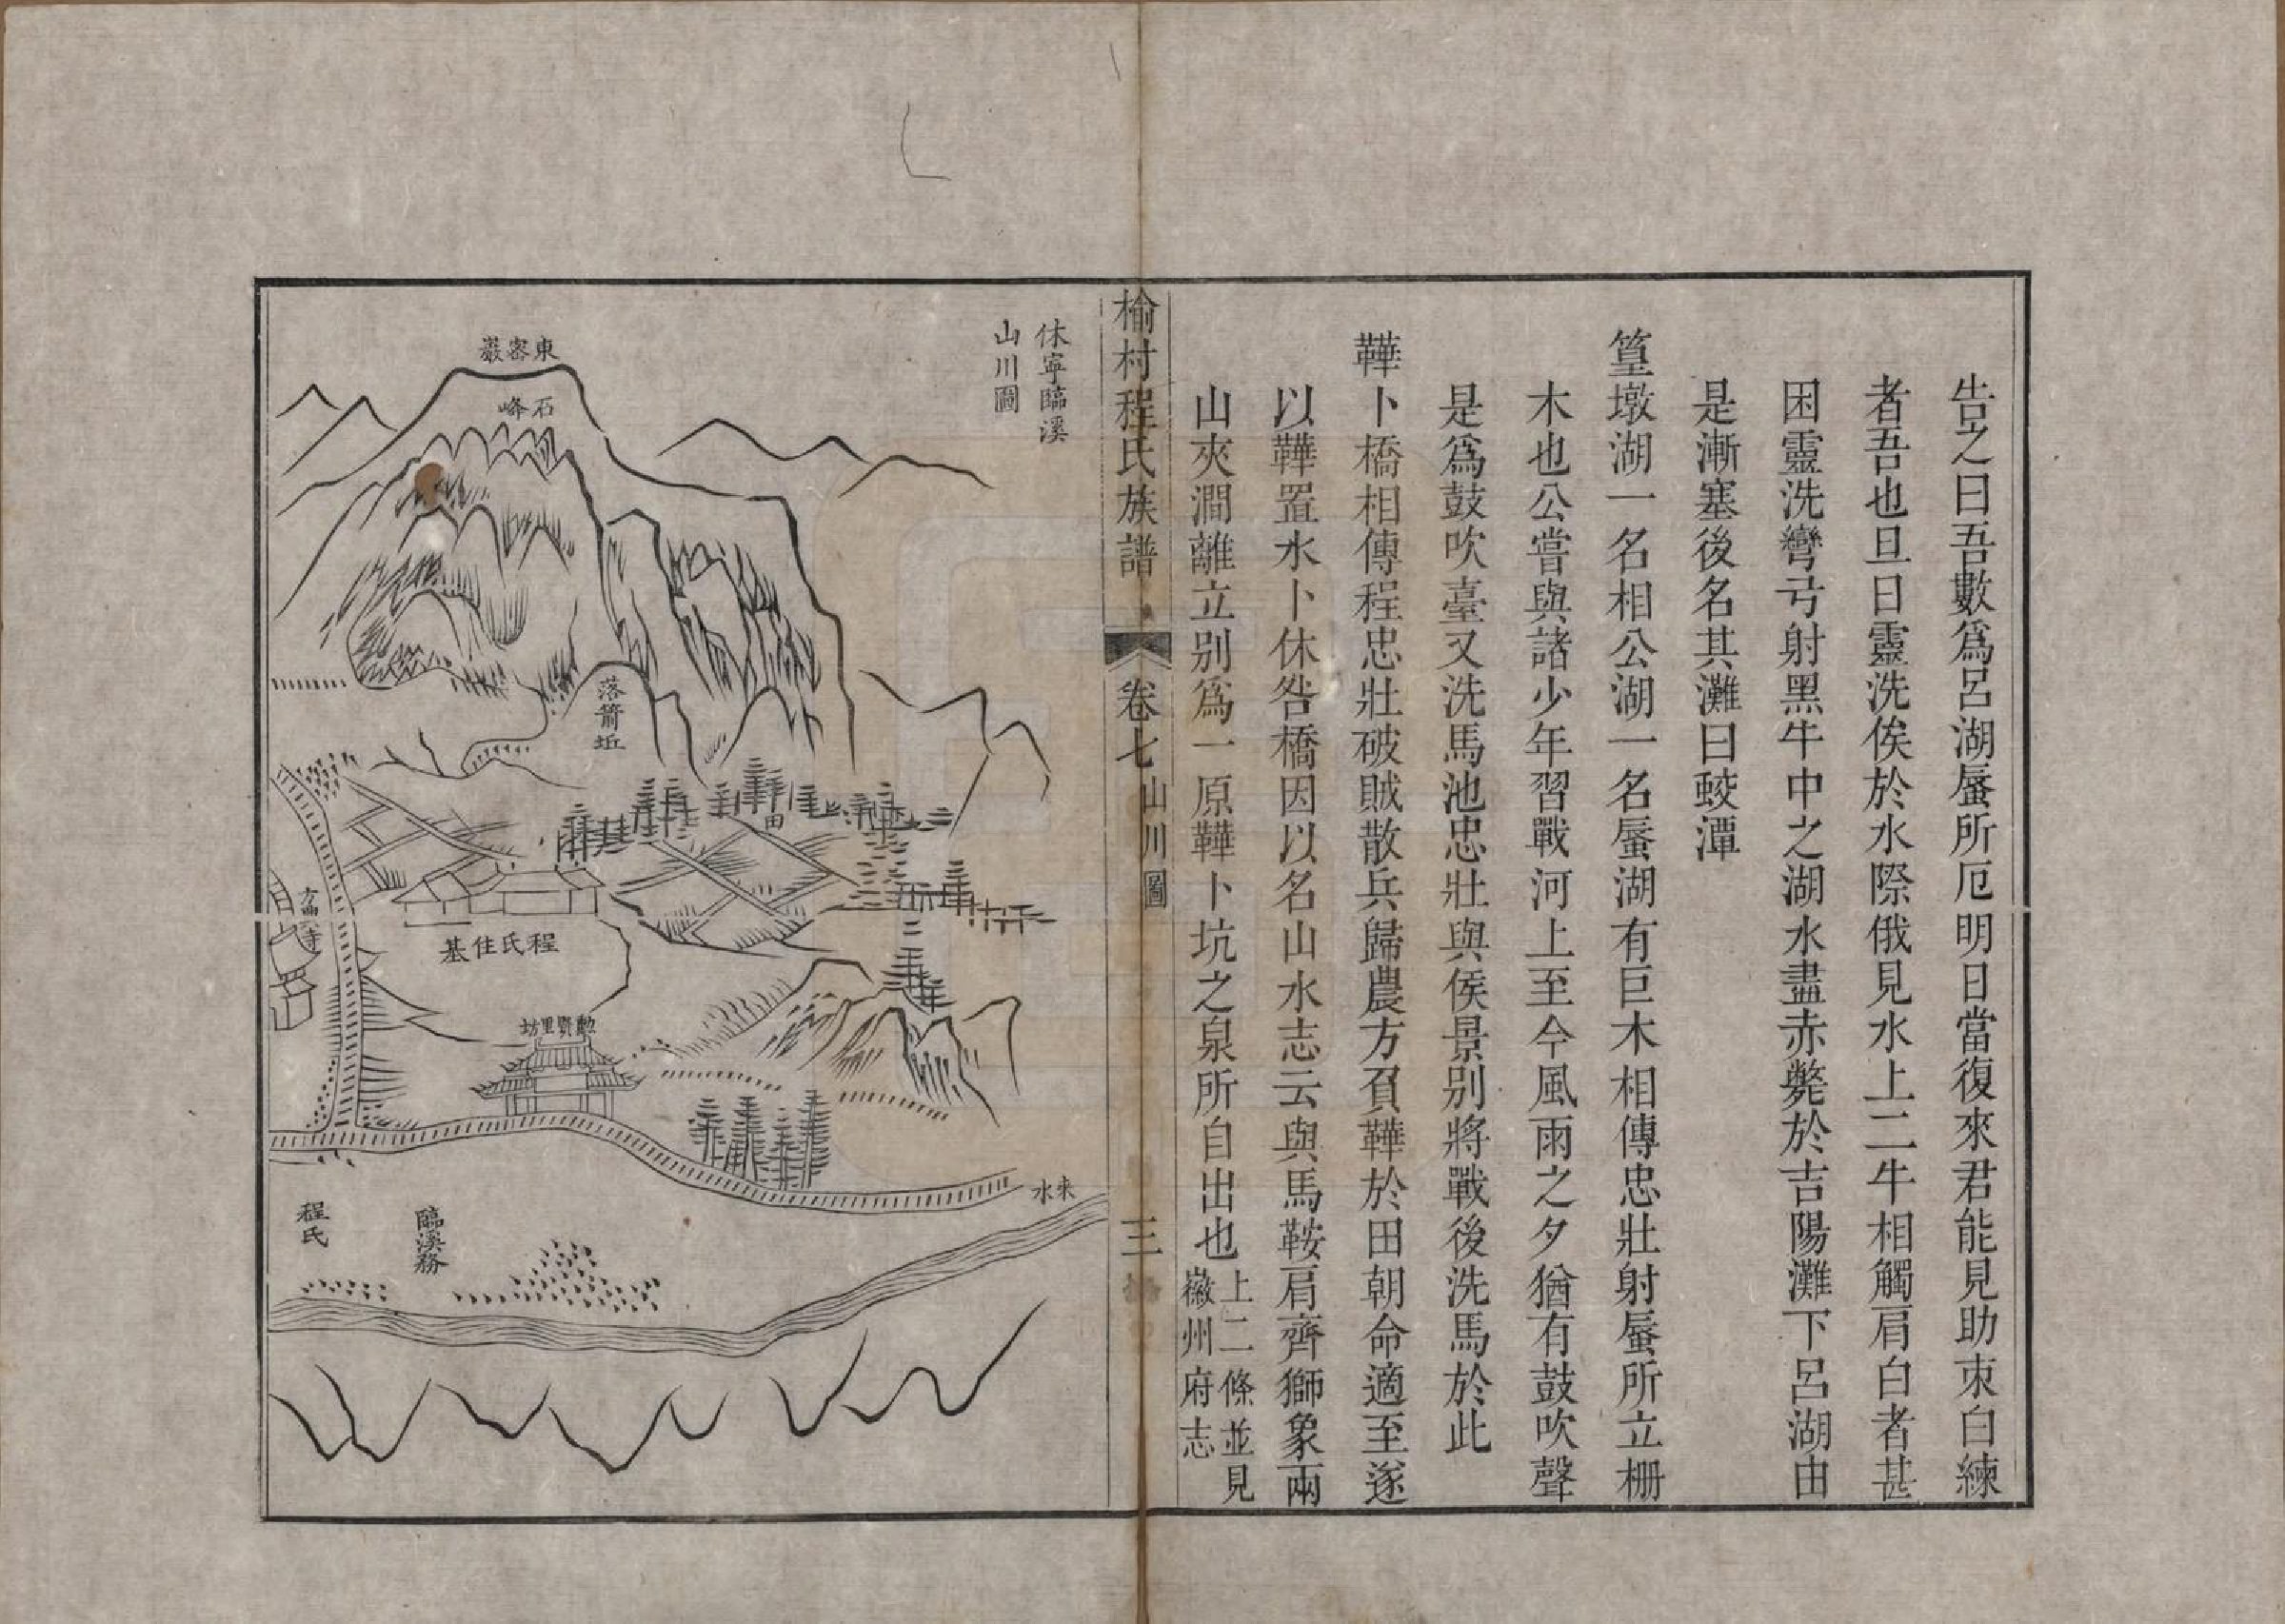 告之曰吾數爲呂湖蜃所厄明日當復來君能見助束白練
者吾也旦日靈洗俟於水際俄見水上二牛相觸肩白者甚
困靈洗彎弓射黑牛中之湖水盡赤斃於吉陽灘下呂湖由
是漸塞後名其灘曰蛟潭
篁墩湖一名相公湖一名蜃湖有巨木相傳忠壯射蜃所立栅
木也公嘗與諸少年習戰河上至今風雨之夕猶有鼓吹聲
是爲鼓吹臺又洗馬池忠壯與侯景别將戰後洗馬於此
鞾卜橋相傳程忠壯破賊散兵歸農方負鞾於田朝命適至遂
以鞾置水卜休咎橋因以名山水志云與馬鞍肩齊獅象兩
山夾澗離立别爲一原鞾卜坑之泉所自出也
上二條並見
徽州府志
榆村程氏族譜
卷七
山川圖
三
休寧臨溪
山川圖
東密巖
石峰
落箭坵
田
程氏住基
寺
勳賢里坊
来水
臨溪務
程氏